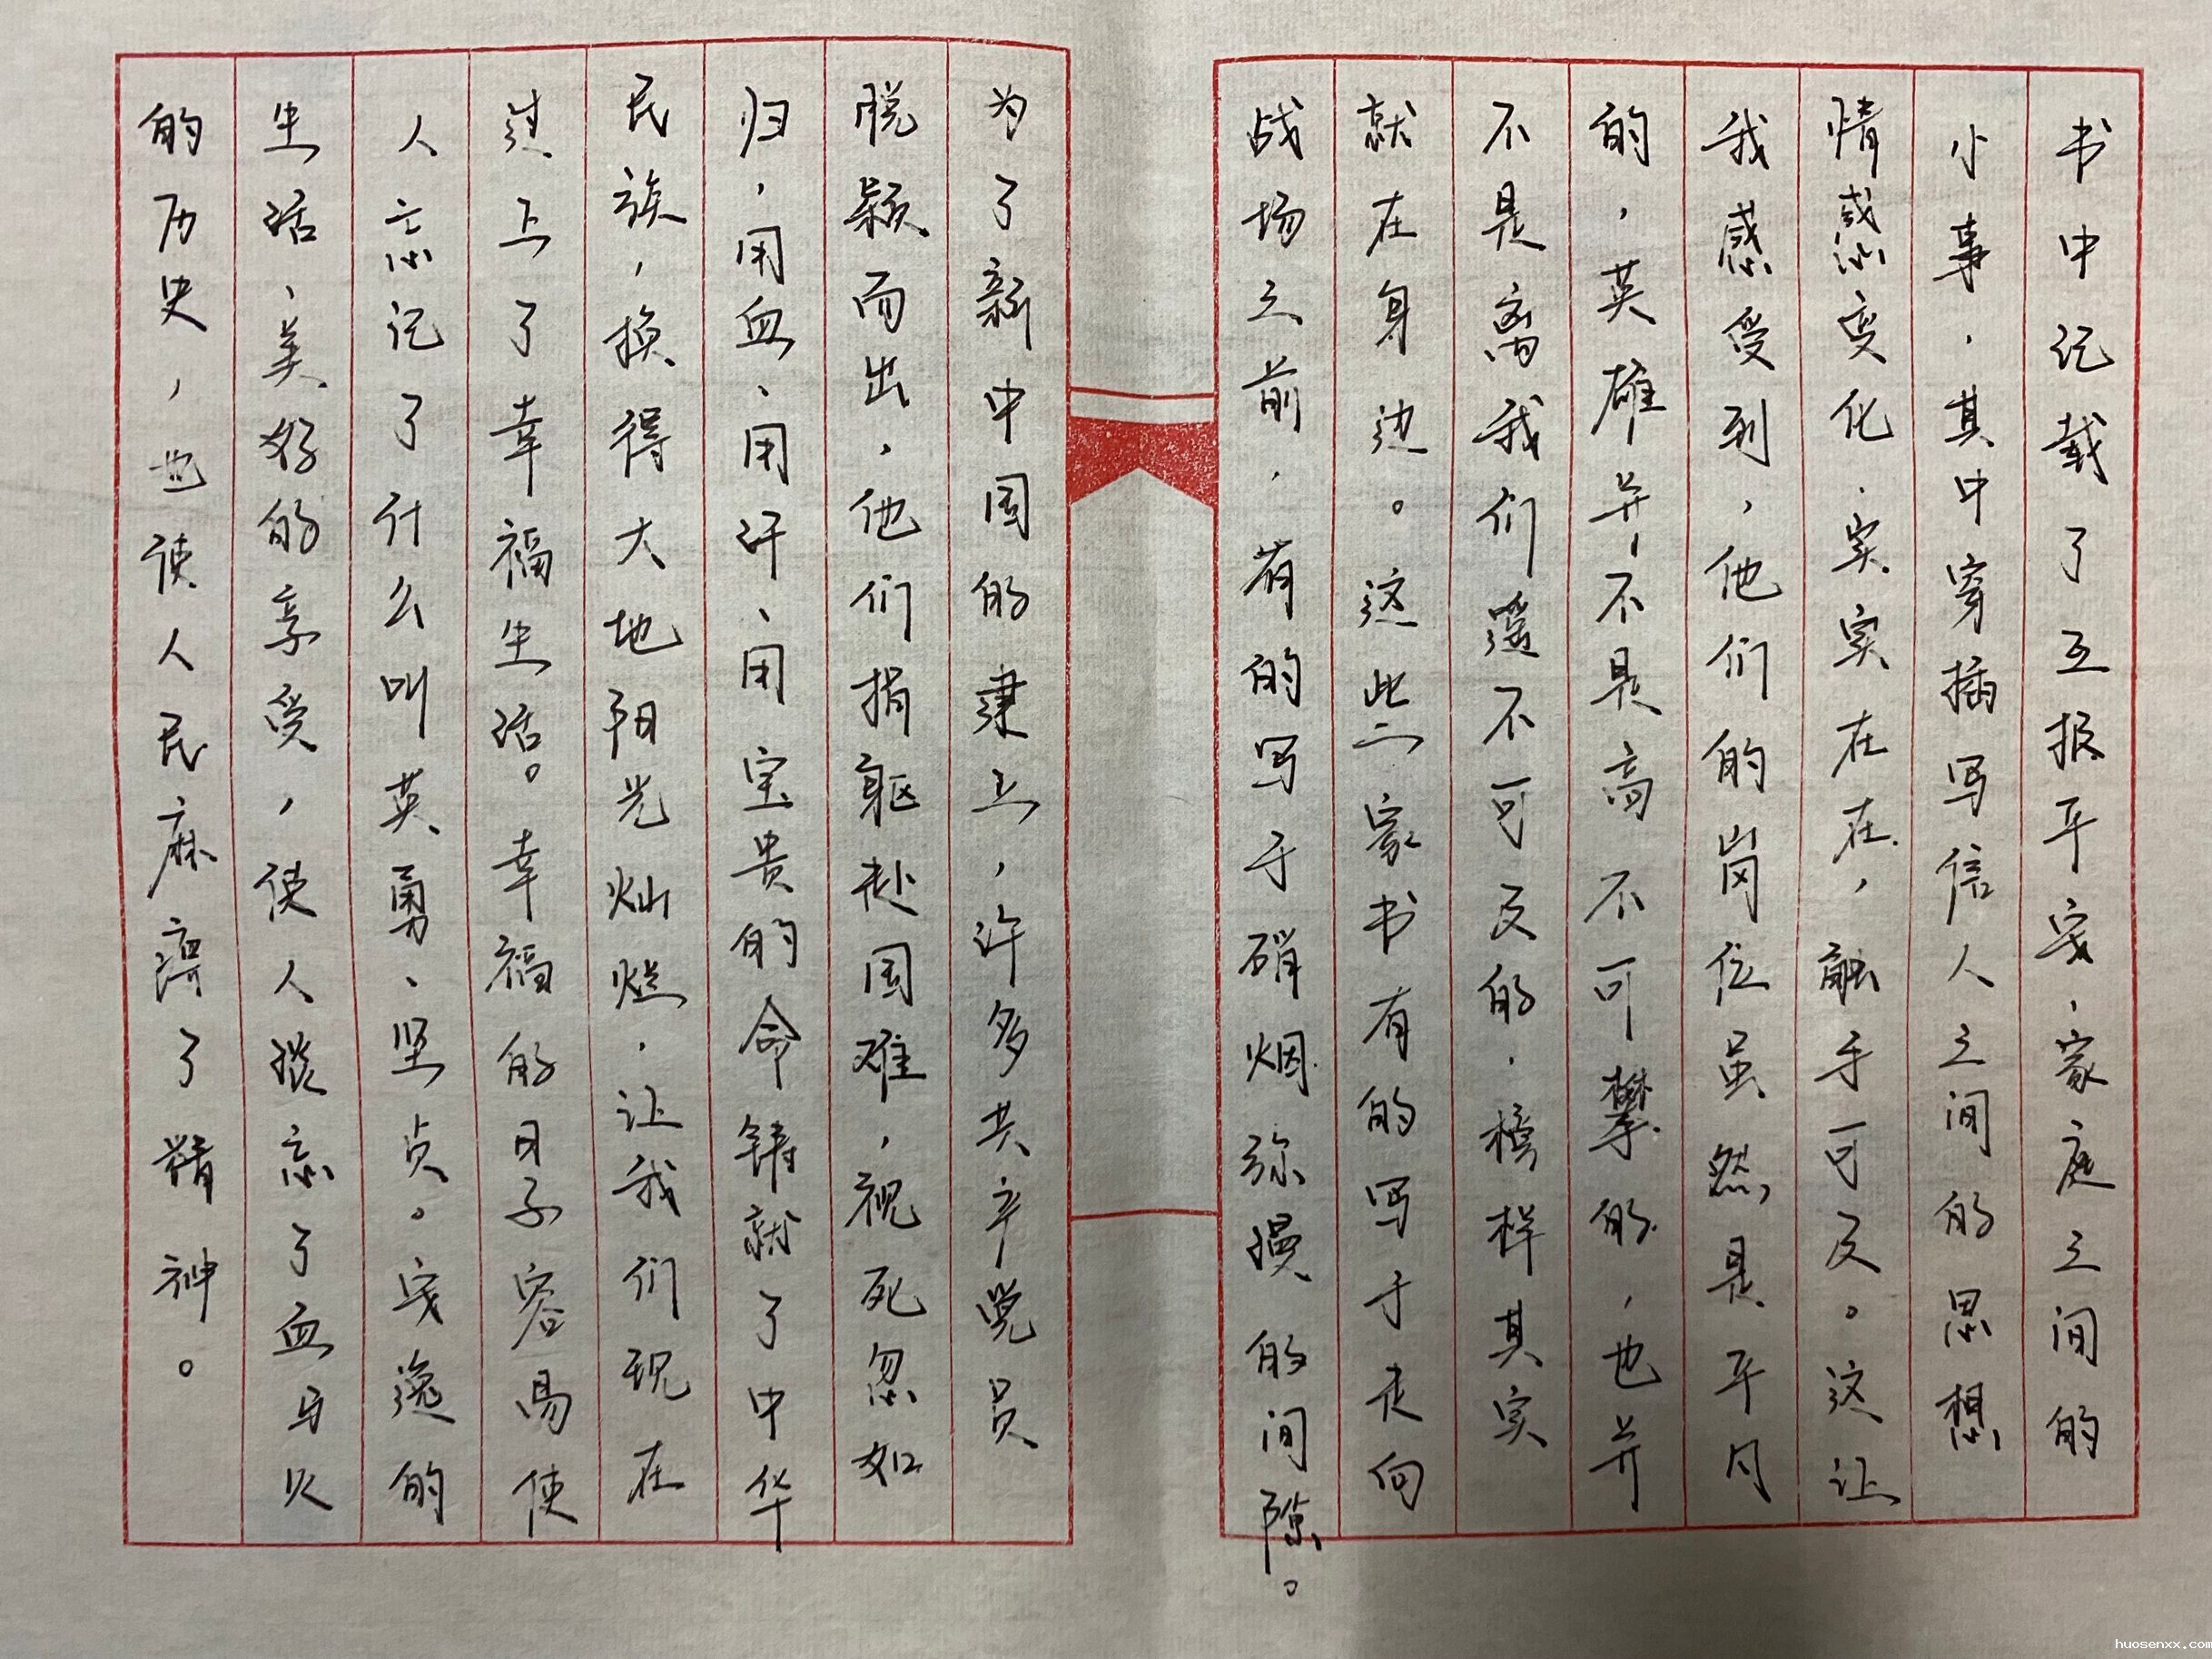 书中记载了互报平安，家庭之间的
小事，其中穿插写信人之间的思想
情感变化，实实在在，触手可及。这让
我感受到，他们的岗位虽然是平凡
的，英雄并不是高不可攀的，也并
不是离我们遥不可及的，榜样其实
就在身边。这些家书有的写于走向
战场之前，有的写于硝烟弥漫的间隙。
为了新中国的建立，许多共产党员
脱颖而出，他们捐躯赴国难，视死忽如
归，用血、用汗、用宝贵的命铸就了中华
民族，换得大地阳光灿烂，让我们现在
过上了幸福生活。幸福的日子容易使
人忘记了什么叫英勇、坚贞。安逸的
生活、美好的享受，使人淡忘了血与火
的历史，也使人民麻痹了精神。
huosenxx.com